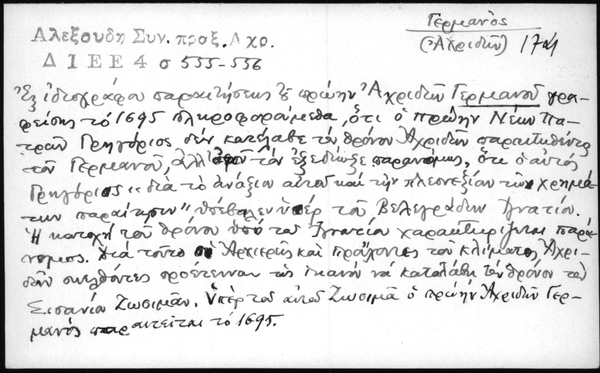 Γερμανὸς
(Ἀχριδῶν) 1701
Αλεξούδη Συν. προξ. Αχρ.
Δ Ι Ε Ε 4 σ 535-536
Ἐξ ἰδιογράφου παραιτήσεως τοῦ πρώην Ἀχριδῶν Γερμανοῦ γρα-
φείσης τὸ 1695 πληροφορούμεθα, ὅτι ὁ πρώην Νέων Πα-
τρῶν Γρηγόριος δὲν κατέλαβε τὸν θρόνον Ἀχριδῶν παραιτηθέντος
τοῦ Γερμανοῦ, ἀλλ' ἀφοῦ τὸν ἐξεδίωξε παρανόμως, ὅτι ὁ αὐτὸς
Γρηγόριος "διὰ τὸ ἀνάξιον αὐτοῦ καὶ τὴν πλεονεξίαν τῶν χρημά-
των παραίτησιν" ὑπέβαλεν ὑπὲρ τοῦ Βελεγράδων Ἰγνατίου.
Ἡ κατοχὴ τοῦ θρόνου ὑπὸ τοῦ Ἰγνατίου χαρακτηρίζεται παρά-
νομος. Διὰ τοῦτο οἱ Ἀρχιερεῖς καὶ προὔχοντες τοῦ κλίματος Ἀχρι-
δῶν συνελθόντες προέτειναν τὸν ἱκανὸν νὰ καταλάβῃ τὸν θρόνον τὸν
Σισανίου Ζωσιμᾶν. Ὑπὲρ τοῦ αὐτοῦ Ζωσιμᾶ ὁ πρώην Ἀχριδῶν Γερ-
μανὸς παραιτεῖται τὸ 1695.